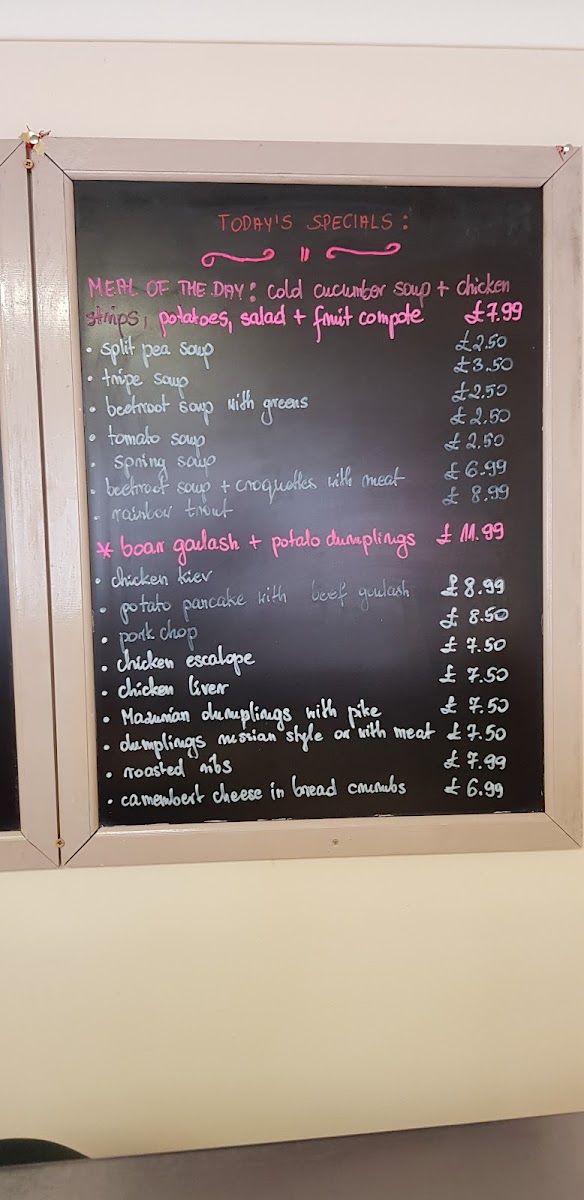 TODAY'S SPECIALS:
MEAL OF THE DAY: cold cucumber soup + chicken
strips, potatoes, salad + fruit compote £7.99
• split pea soup £2.50
• tripe soup £3.50
• beetroot soup with greens £2.50
• tomato soup £2.50
• spring soup £2.50
• beetroot soup + croquettes with meat £6.99
• rainbow trout £8.99
* boar goulash + potato dumplings £11.99
• chicken kiev
• potato pancake with beef goulash £8.99
• pork chop £8.50
• chicken escalope £7.50
• chicken liver £7.50
• Masurian dumplings with pike £7.50
• dumplings russian style or with meat £7.50
• roasted ribs £7.99
• camembert cheese in bread crumbs £6.99